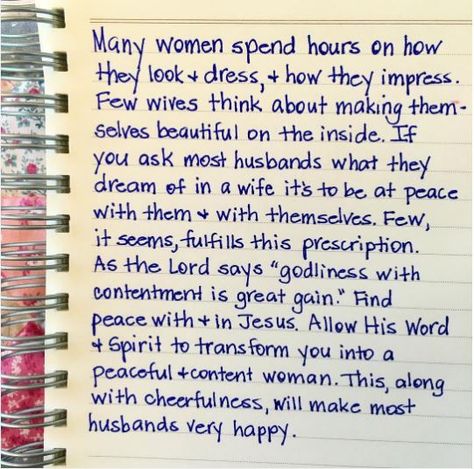 Many women spend hours on how
they look + dress, + how they impress.
Few wives think about making them-
selves beautiful on the inside. If
you ask most husbands what they
dream of in a wife it's to be at peace
with them + with themselves. Few,
it seems, fulfills this prescription.
As the Lord says "godliness with
contentment is great gain." Find
peace with + in Jesus. Allow His Word
+ Spirit to transform you into a
peaceful + content woman. This, along
with cheerfulness, will make most
husbands very happy.